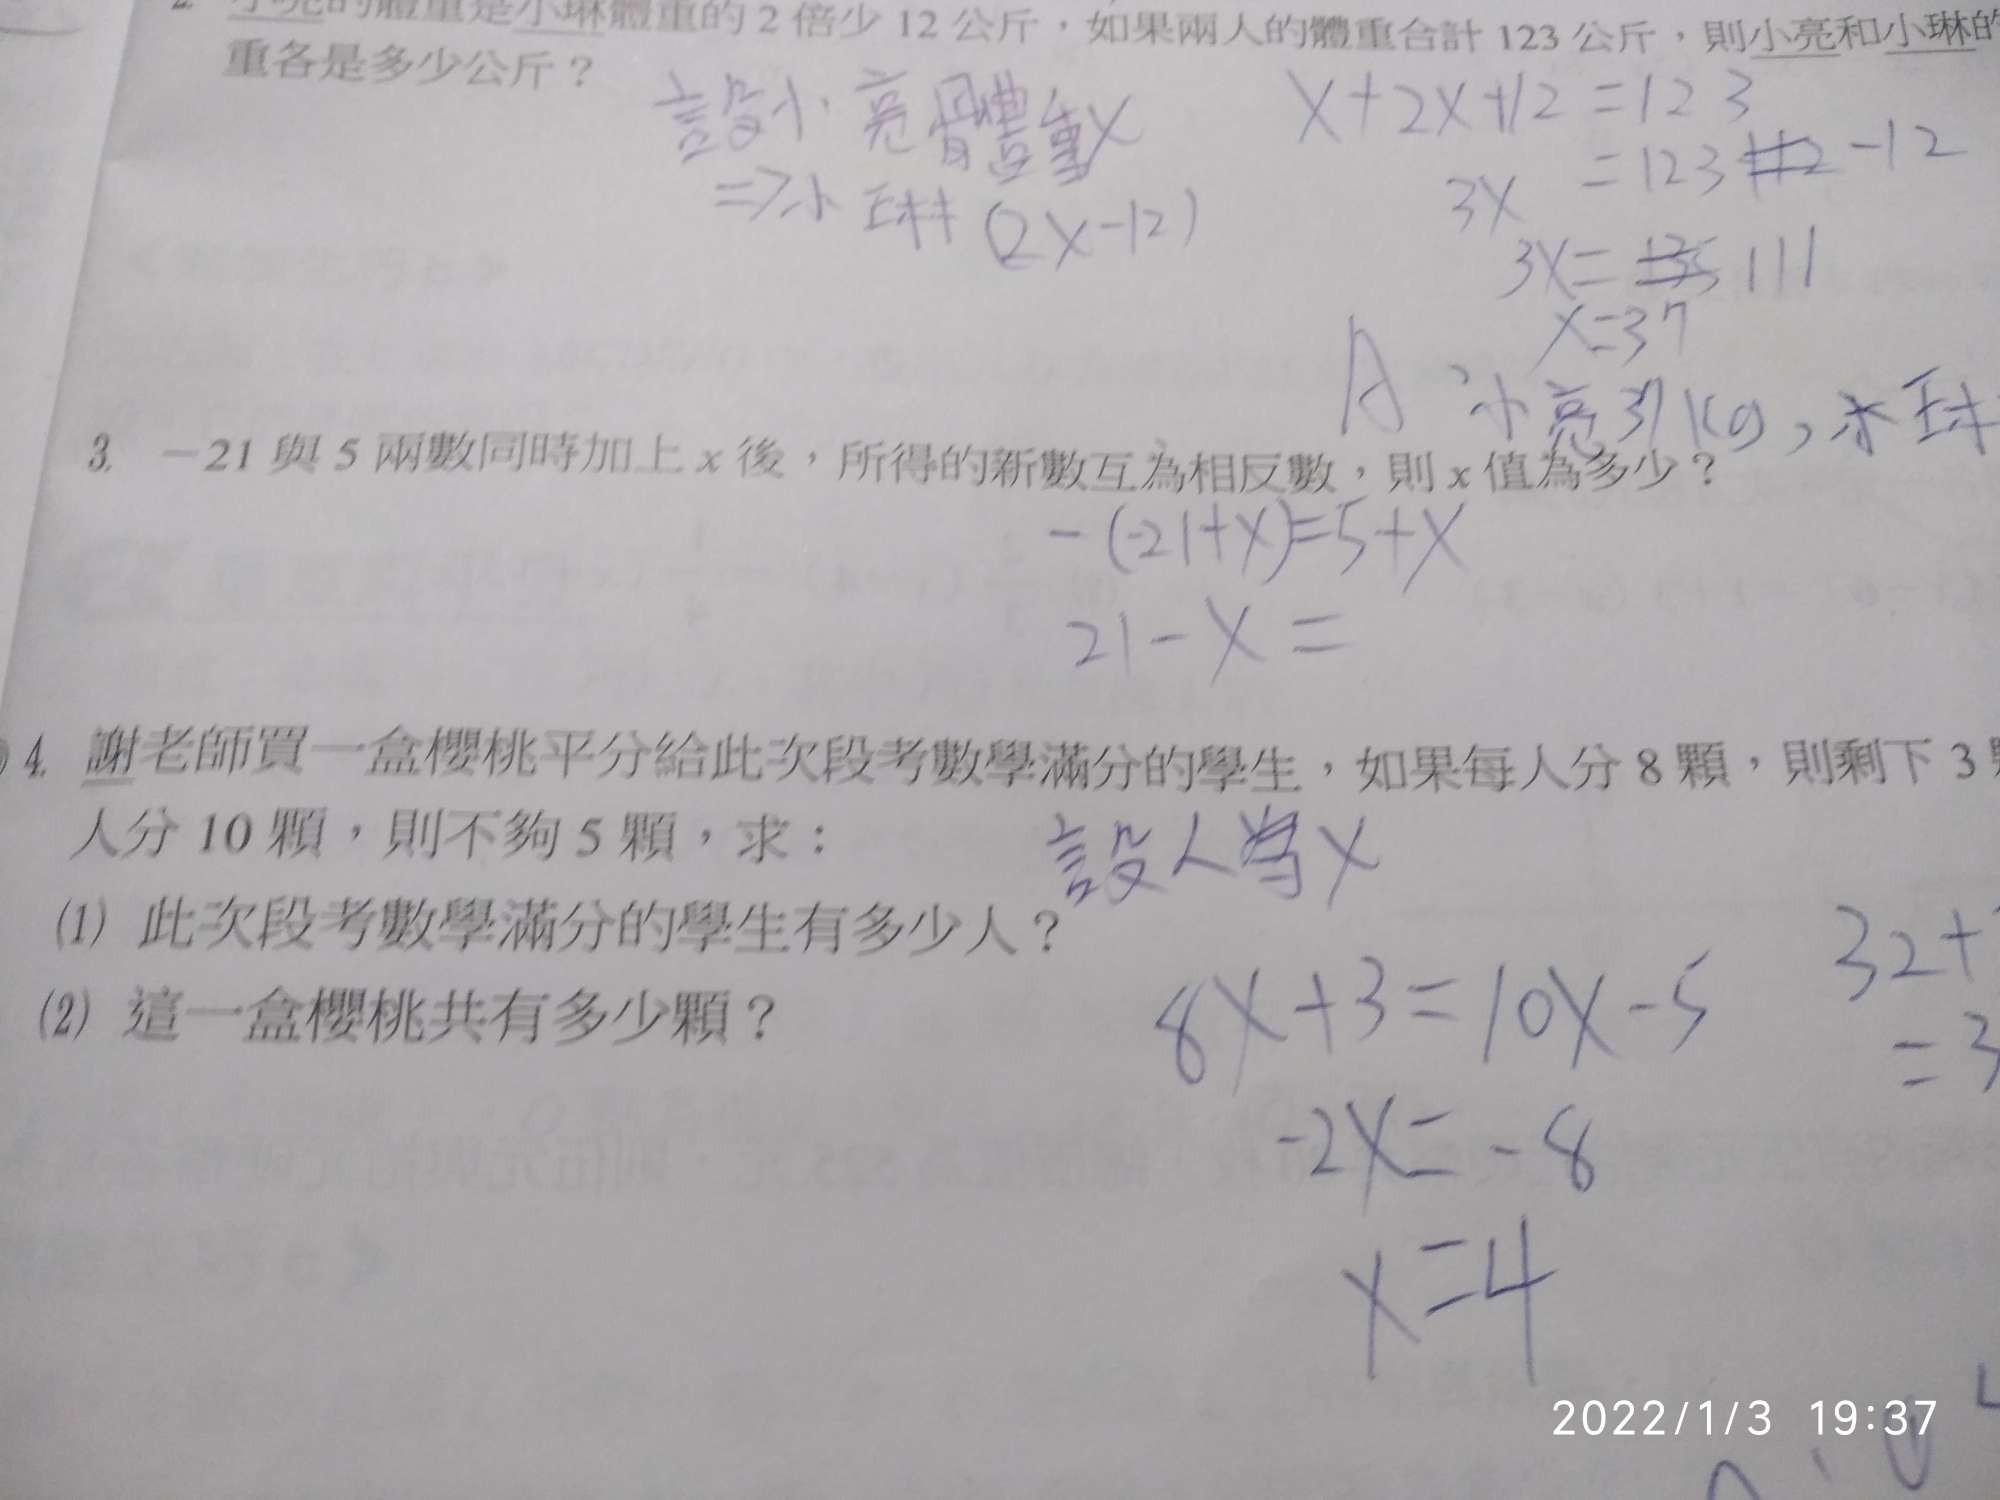 2. 小亮的體重是小琳體重的2倍少12公斤，如果兩人的體重合計123公斤，則小亮和小琳的
重各是多少公斤？
設小亮體重X
=>小琳(2X-12)
X+2X+12=123
3X =123 -12
3X= 111
X=37
A：小亮37kg，小琳
3. －21與5兩數同時加上x後，所得的新數互為相反數，則x值為多少？
-(-21+X)=5+X
21-X=
4. 謝老師買一盒櫻桃平分給此次段考數學滿分的學生，如果每人分8顆，則剩下3
人分10顆，則不夠5顆，求：
設人為X
(1) 此次段考數學滿分的學生有多少人？
(2) 這一盒櫻桃共有多少顆？
8X+3=10X-5
-2X=-8
X=4
32+
=3
2022/1/3 19:37